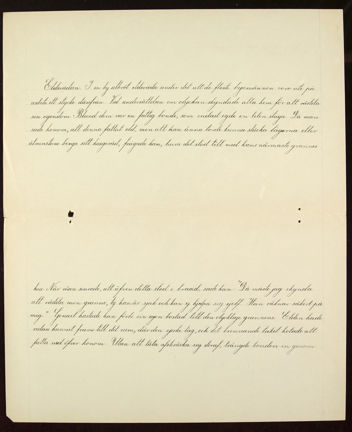 Eldsvådan. I en by utbröt eldsvåda under det att de flesta byamännen voro ute på
arbete ett stycke därifrån. Vid underrättelsen om olyckan skyndade alla hem för att rädda
sin egendom. Bland dem var en fattig bonde, som endast egde en liten stuga. Då man
sade honom, att denna fattat eld, men att han ännu torde kunna släcka lågorna eller
åtminstone berga sitt husgeråd, frågade han, huru det stod till med hans närmaste grannes
hus. När man svarade, att äfven detta stod i brand, sade han: "Då måste jag skynda
att rädda min granne, ty han är sjuk och kan ej hjälpa sig sjelf. Han räknar säkert på
mig." Genast hastade han förbi sin egen bostad till den olycklige grannens. Elden hade
redan hunnit fram till det rum, där den sjuke låg, och det brinnande taket hotade att
falla ned öfver honom. Utan att låta afskräcka sig deraf, trängde bonden in genom